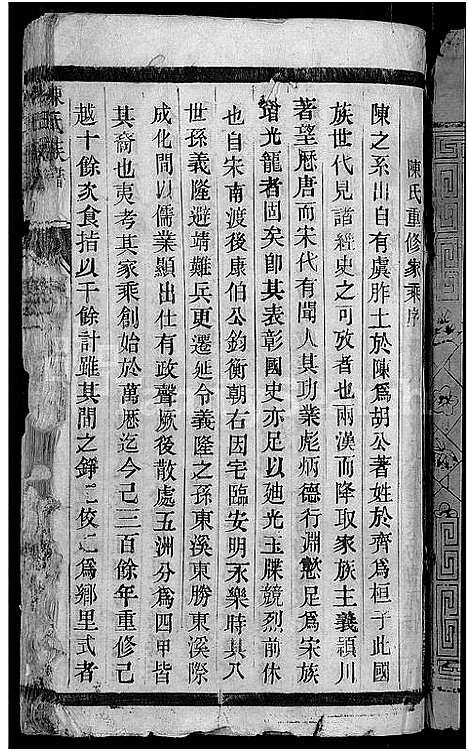 陳氏重修家乘序
陳之系出自有虞胙土於陳爲胡公著姓於齊爲桓子此國
族世代見諸經史之可攷者也兩漢而降取家族主義潁川
著望歷唐而宋代有聞人其功業彪炳德行淵懿足爲宋族
增光龍者固矣卽其表彰國史亦足以廸光玉牒競烈前休
也自宋南渡後康伯公鈞衡朝右因宅臨安明永樂時其八
世孫義隆避靖難兵更遷延令義隆之孫東溪東勝東溪際
成化間以儒業顯出仕有政聲厥後散處五洲分爲四甲皆
其裔也夷考其家乘創始於萬厯迄今已三百餘年重修已
越十餘次食指以千餘計雖其間之錚〻佼〻爲鄉里式者
陳氏族譜